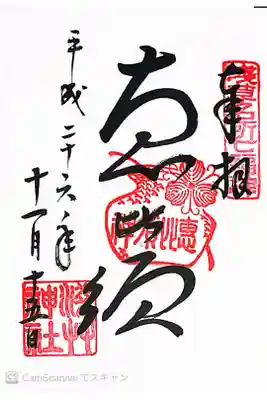 奉拝
恵比須
平成二十六年
十一月十五日
浅草
神社
CamScanner でスキャン